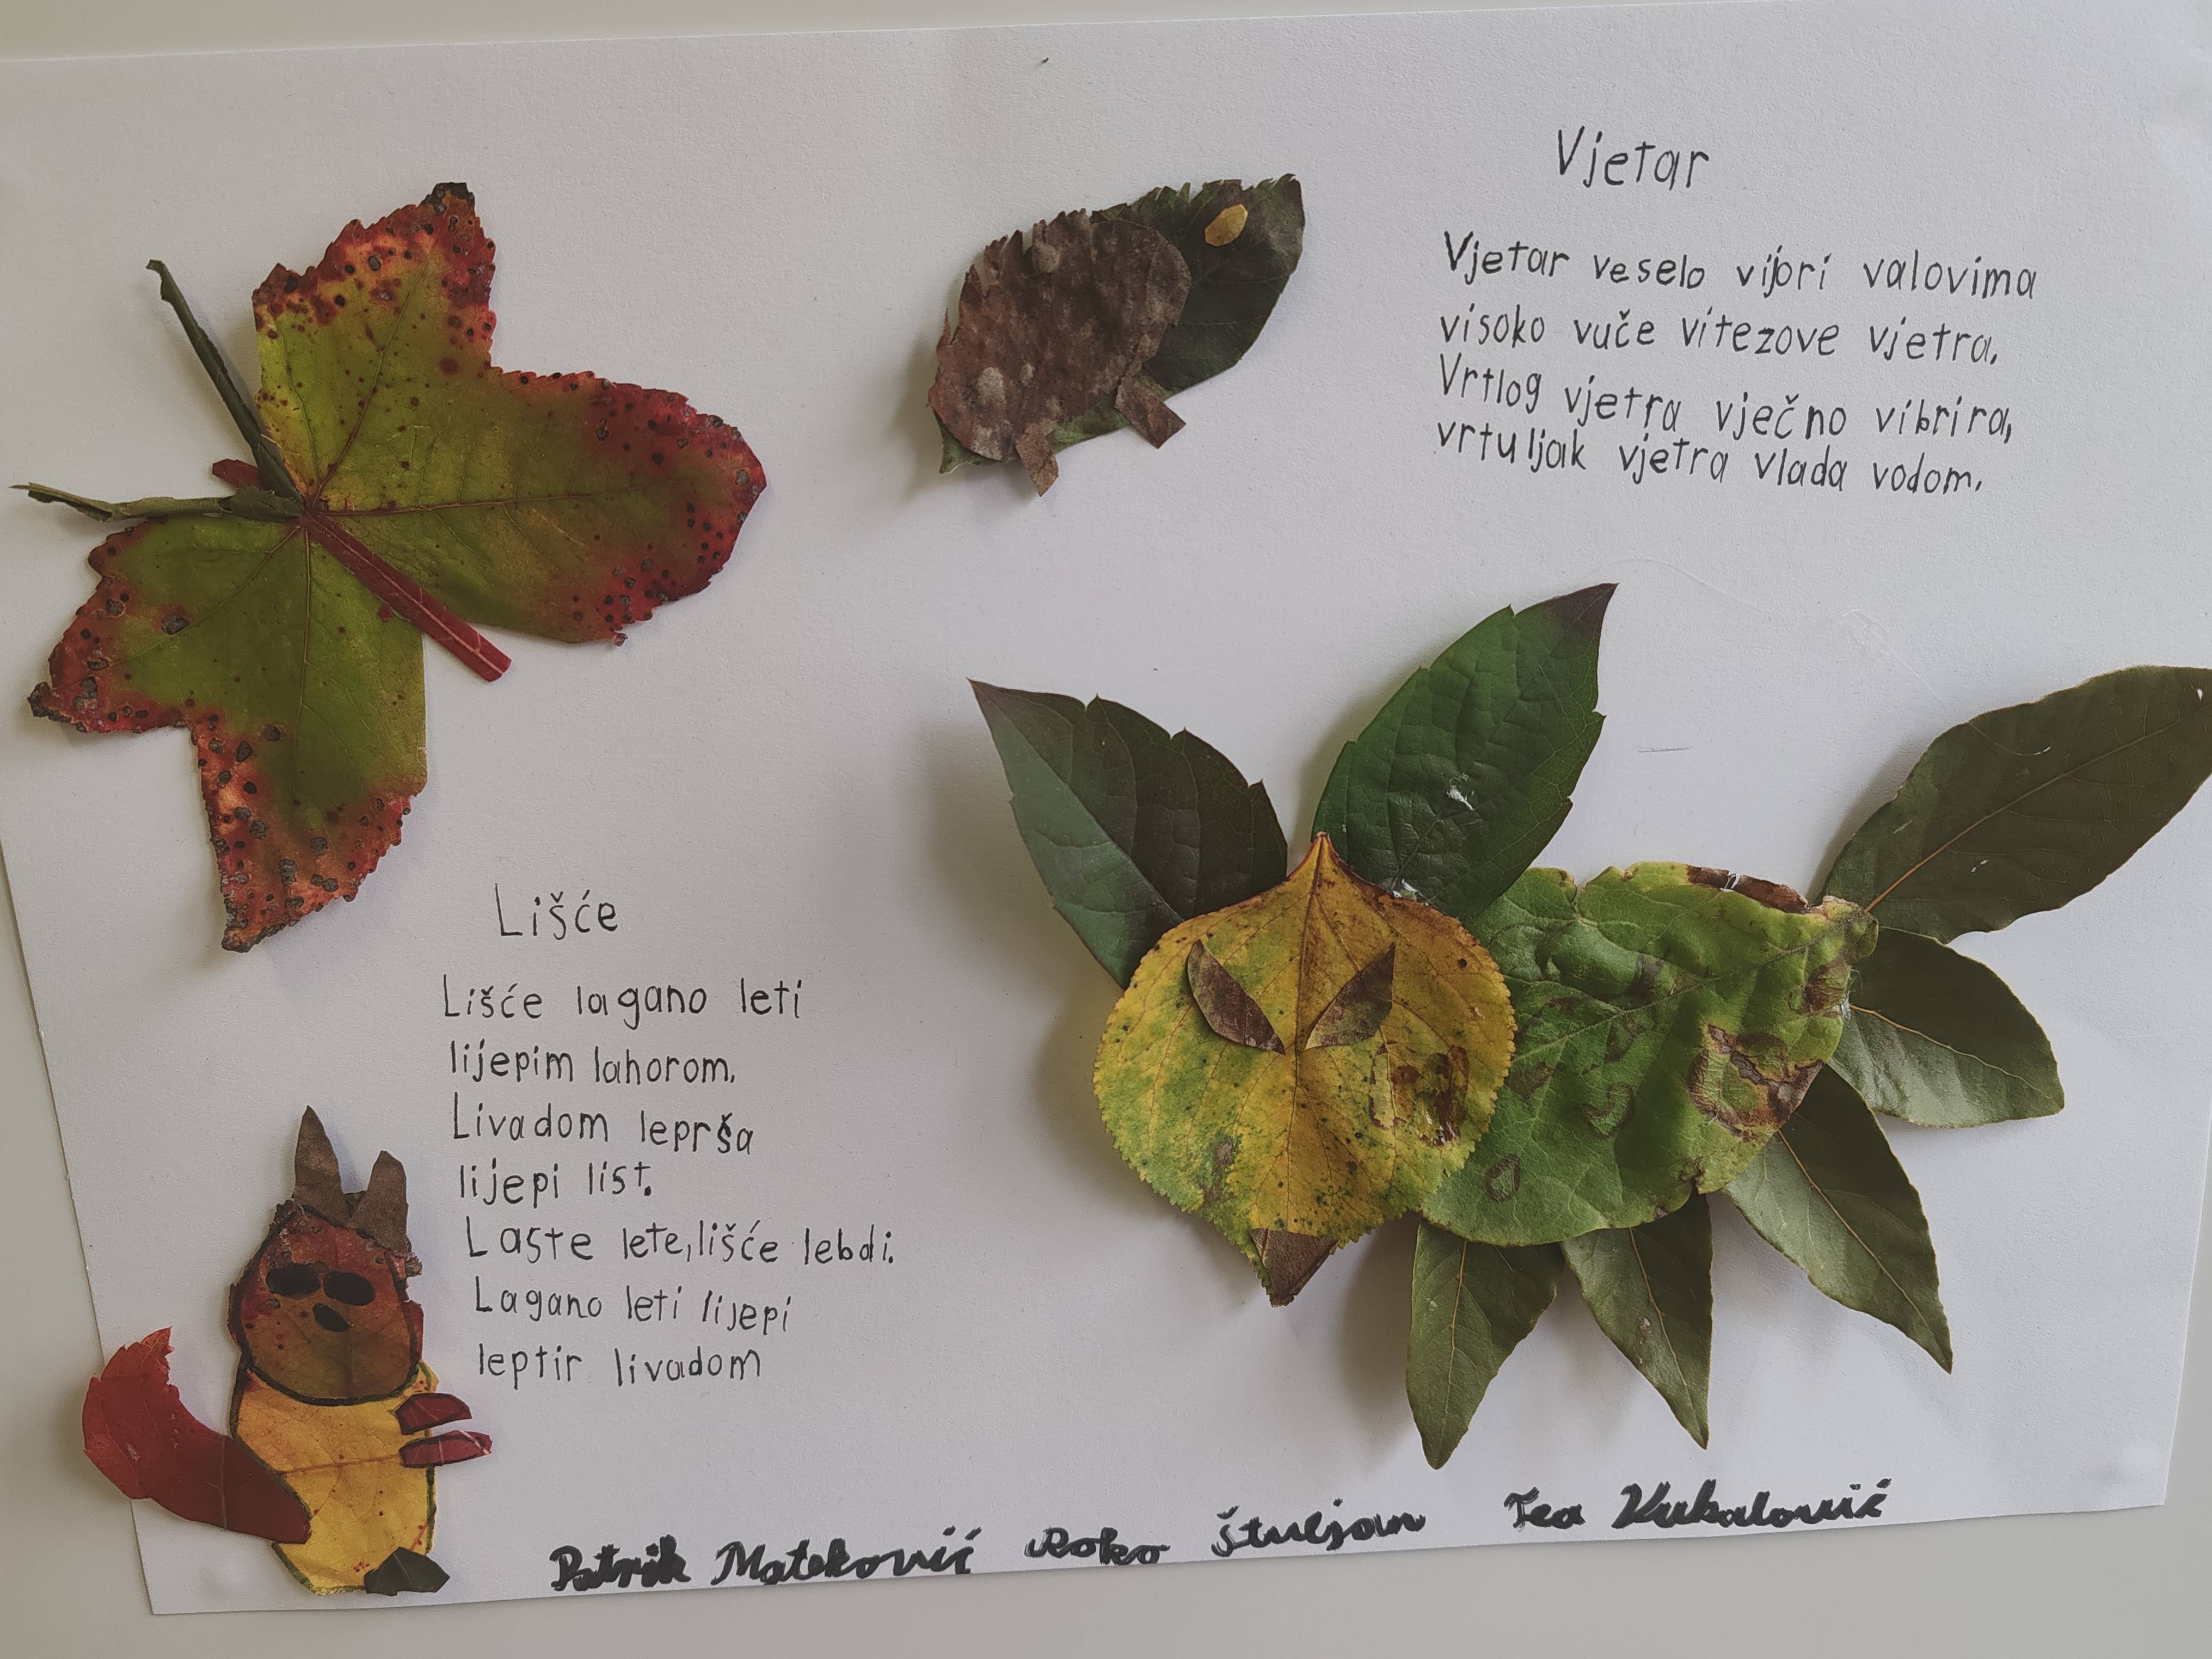 Vjetar
Vjetar veselo vijori valovima
visoko vuče vitezove vjetra.
Vrtlog vjetra vječno vibrira,
vrtuljak vjetra vlada vodom.
Lišće
Lišće lagano leti
lijepim lahorom.
Livadom leprša
lijepi list.
Laste lete, lišće lebdi.
Lagano leti lijepi
leptir livadom
Patrik Mateković Roko Štuljan Tea Vukalović